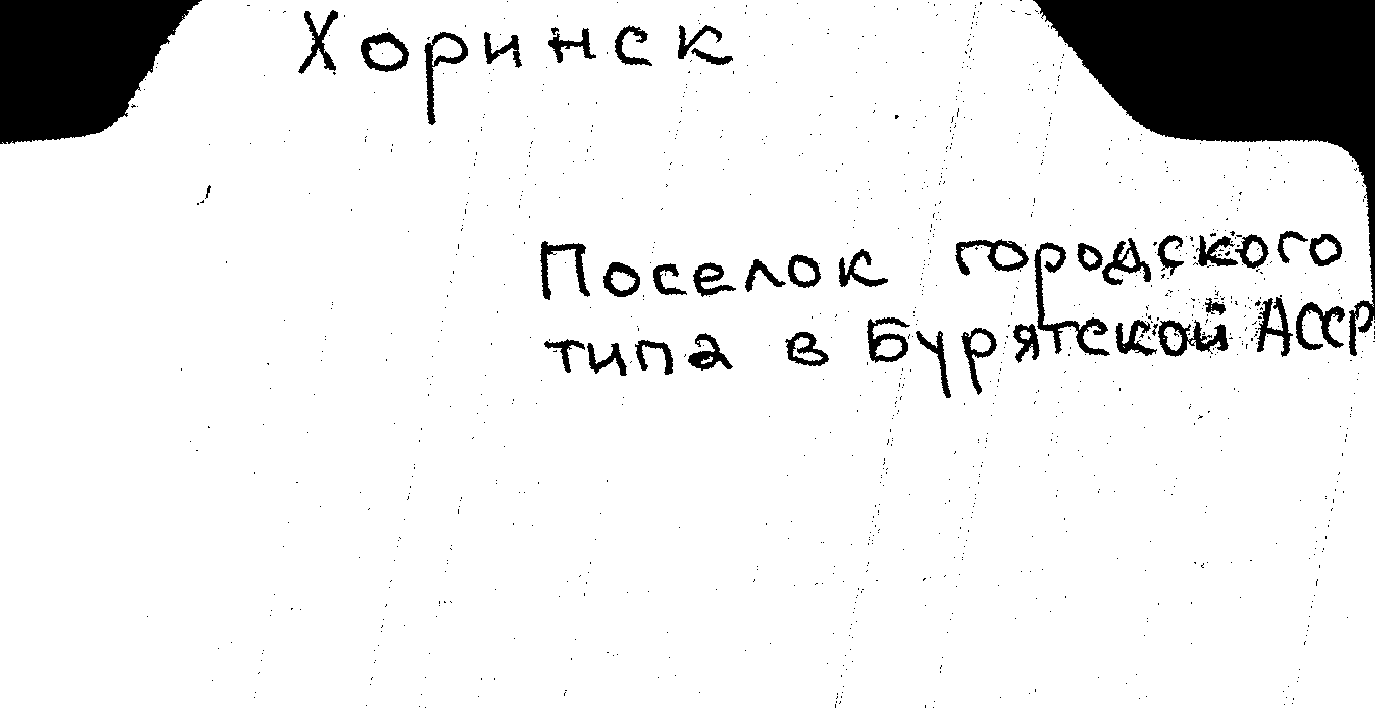 Хоринск
Поселок городского
типа в Бурятской АССР